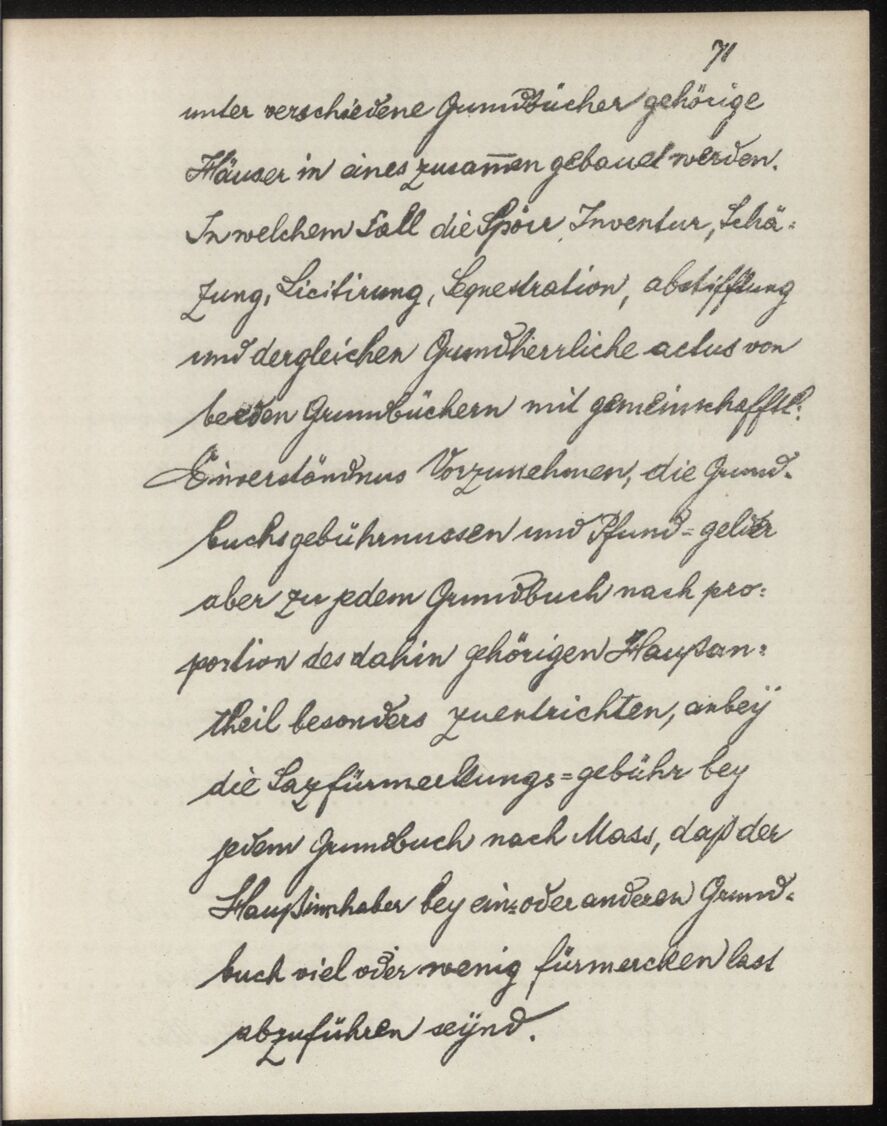 71
unter verschiedene Grundbücher gehörige
Häuser in eines zusam̅en gebauet werden.
In welchem Fall die Spörr, Inventur, Schä=
zung, Licitirung, Sequestration, abstifftung
und dergleichen Grundherrliche actus von
beeden Grundbüchern mit gemeinschafftl:
Einverständnus Vorzunehmen, die Grund=
buchsgebührnussen und Pfund=gelder
aber zu jedem Grundbuch nach pro=
portion des dahin gehörigen Haußan=
theil besonders zuentrichten, anbeÿ
die Sazfürmerkungs=gebühr bey
jedem Grundbuch nach Mass, daß der
Haußinnhaber bey ein=oder anderen Grund=
buch viel oder wenig fürmercken last
abzuführen seÿnd.